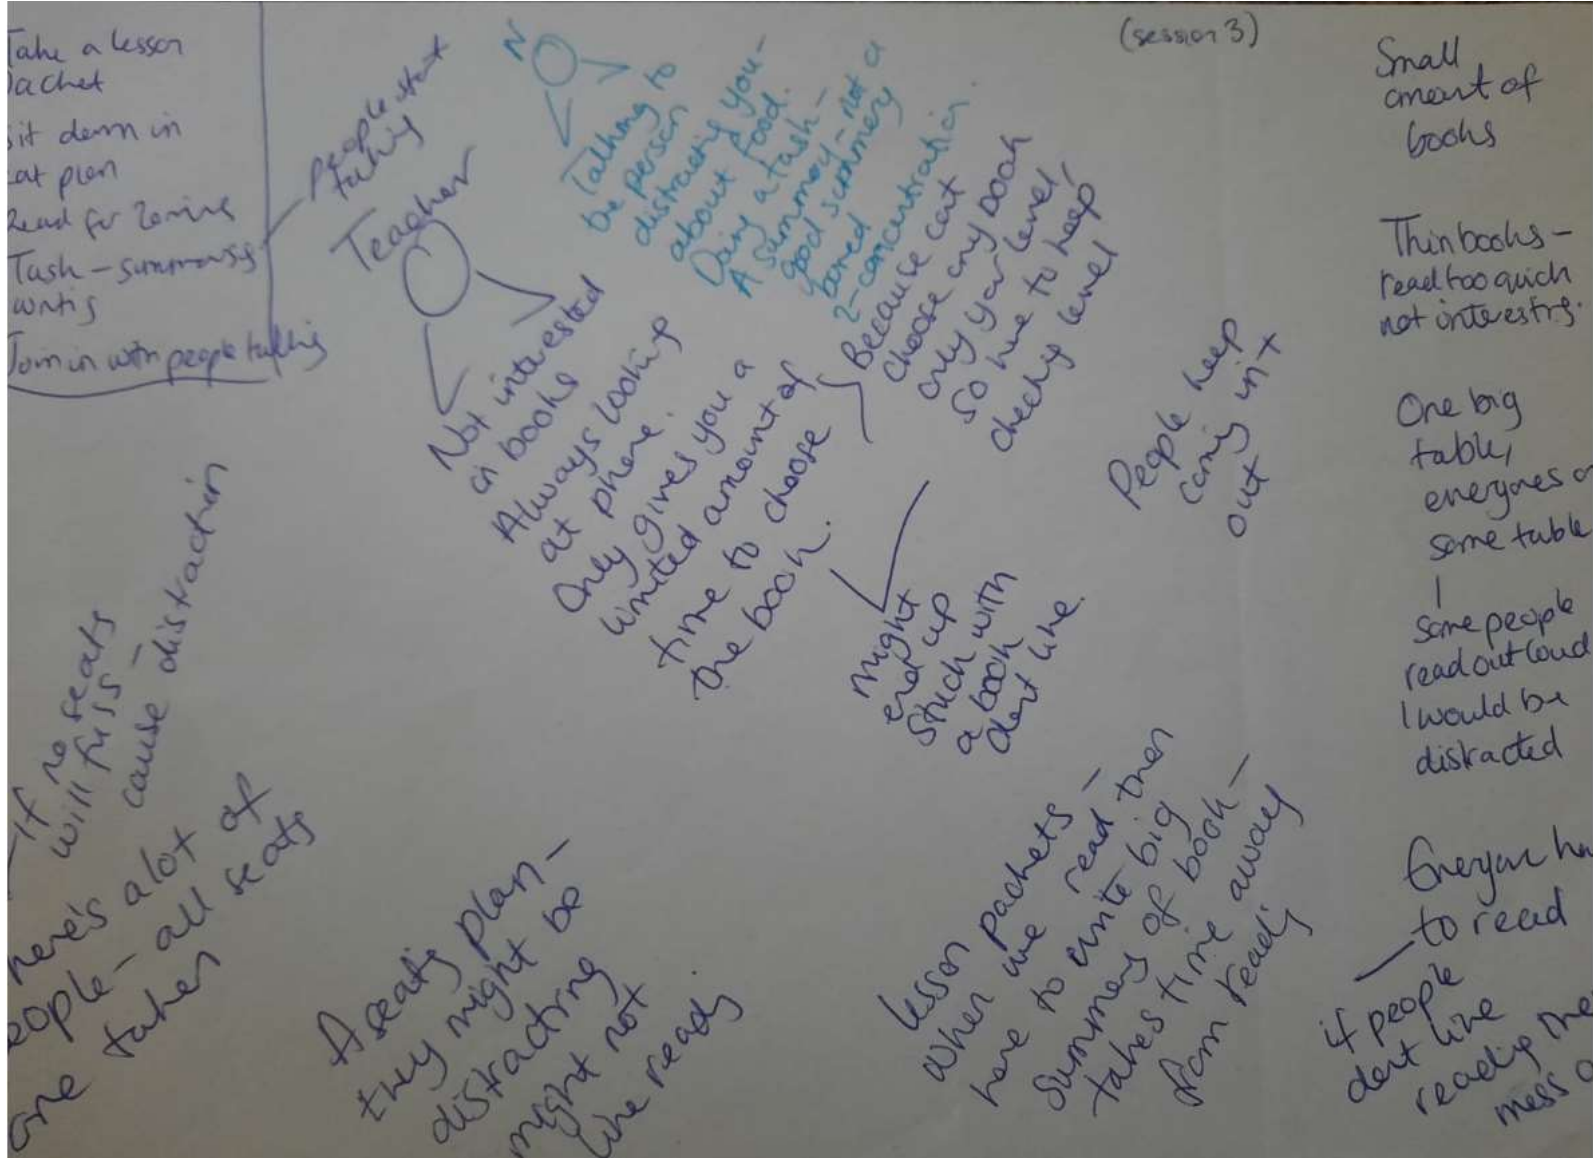 (session 3)
Take a lesson
Packet
Sit down in
seat plan
Read for 20mins
Task – summary
writing
Join in with people talking
People start
talking
Teacher
Not interested
in books
Always looking
at phone.
Only gives you a
limited amount of
time to choose
the book.
N
Talking to
the person
distracting you –
about food.
Doing a task –
A summary – not a
good summary
bored
2 – concentration.
Because cant
choose any book
only your level,
So have to keep
checking level
might
end up
stuck with
a book
dont like.
People keep
coming in +
out
Small
amount of
books
Thin books –
read too quick
not interesting.
One big
table,
everyones on
same table
some people
read out loud
I would be
distracted
Everyone ha
to read
if people
dont like
reading the
mess
If no seats
will fuss –
cause distraction
here's alot of
eople – all seats
are taken
A seating plan –
they might be
distracting
might not
like reading.
lesson packets –
When we read then
have to write big
Summary of book –
takes time away
from reading